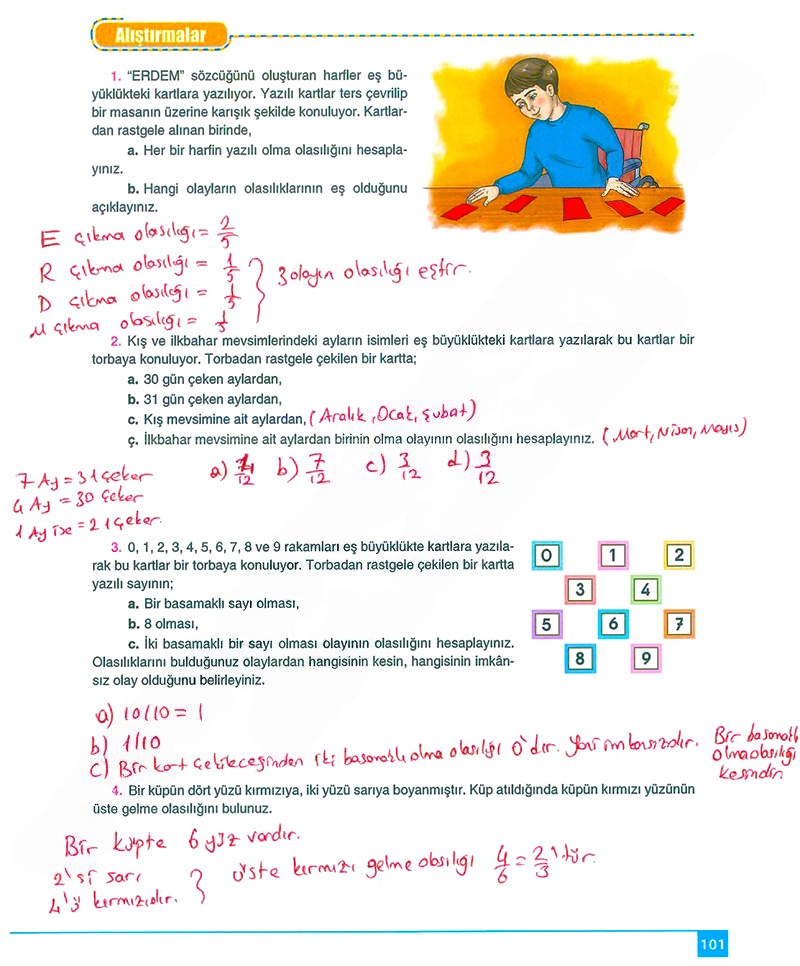 Alıştırmalar
1. "ERDEM" sözcüğünü oluşturan harfler eş bü-
yüklükteki kartlara yazılıyor. Yazılı kartlar ters çevrilip
bir masanın üzerine karışık şekilde konuluyor. Kartlar-
dan rastgele alınan birinde,
a. Her bir harfin yazılı olma olasılığını hesapla-
yınız.
b. Hangi olayların olasılıklarının eş olduğunu
açıklayınız.
E çıkma olasılığı = 2/5
R çıkma olasılığı = 1/5
D çıkma olasılığı = 1/5
M çıkma olasılığı = 1/5
} 3 olayın olasılığı eştir.
2. Kış ve ilkbahar mevsimlerindeki ayların isimleri eş büyüklükteki kartlara yazılarak bu kartlar bir
torbaya konuluyor. Torbadan rastgele çekilen bir kartta;
a. 30 gün çeken aylardan,
b. 31 gün çeken aylardan,
c. Kış mevsimine ait aylardan, (Aralık, Ocak, Şubat)
ç. İlkbahar mevsimine ait aylardan birinin olma olayının olasılığını hesaplayınız. (Mart, Nisan, Mayıs)
7 Ay = 31 çeker
4 Ay = 30 çeker
1 Ay ise = 21 çeker.
a) 4/12 b) 7/12 c) 3/12 d) 3/12
3. 0, 1, 2, 3, 4, 5, 6, 7, 8 ve 9 rakamları eş büyüklükte kartlara yazıla-
rak bu kartlar bir torbaya konuluyor. Torbadan rastgele çekilen bir kartta
yazılı sayının;
a. Bir basamaklı sayı olması,
b. 8 olması,
c. İki basamaklı bir sayı olması olayının olasılığını hesaplayınız.
Olasılıklarını bulduğunuz olaylardan hangisinin kesin, hangisinin imkân-
sız olay olduğunu belirleyiniz.
0 1 2
3 4
5 6 7
8 9
a) 10/10 = 1
b) 1/10
c) Bir kart çekileceğinden iki basamaklı olma olasılığı 0'dır. Yani imkansızdır.
Bir basamaklı
olma olasılığı
kesindir.
4. Bir küpün dört yüzü kırmızıya, iki yüzü sarıya boyanmıştır. Küp atıldığında küpün kırmızı yüzünün
üste gelme olasılığını bulunuz.
Bir küpte 6 yüz vardır.
2'si sarı
4'ü kırmızıdır.
} üste kırmızı gelme olasılığı 4/6 = 2/3'tür.
101